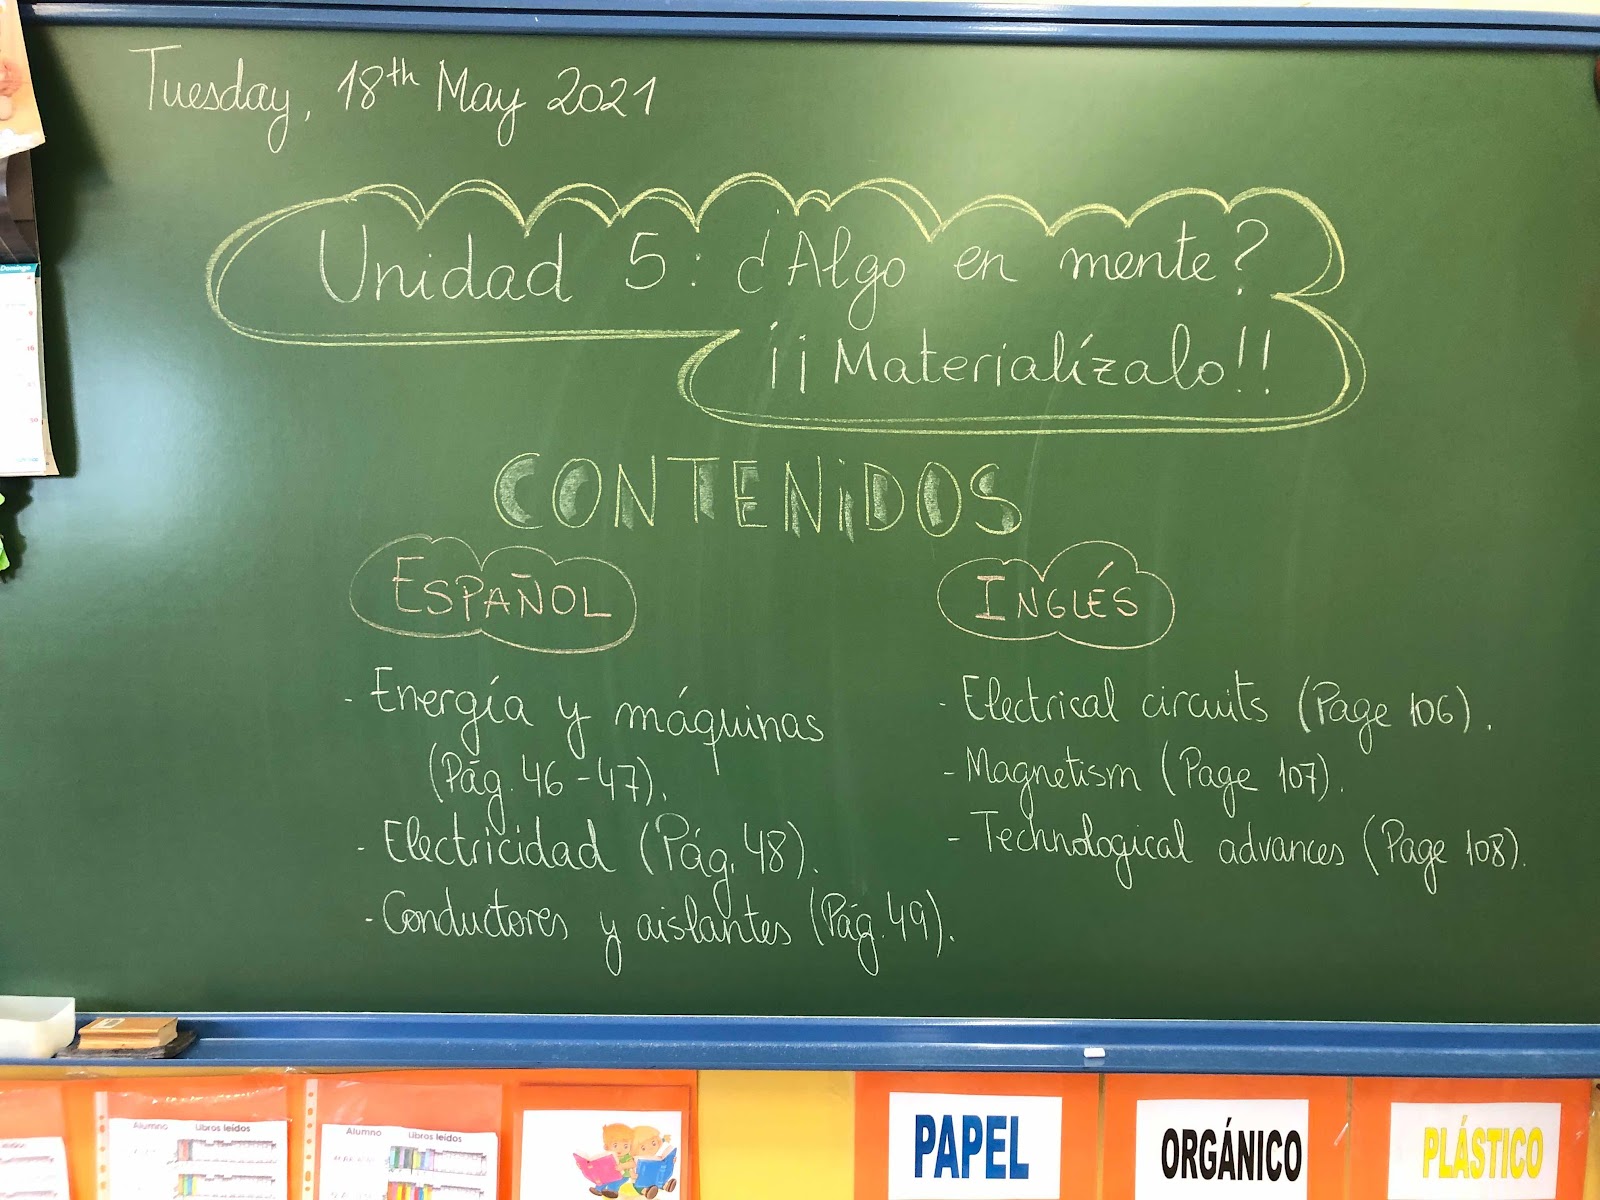 Tuesday, 18th May 2021
Unidad 5: ¿Algo en mente?
¡¡Materialízalo!!
CONTENiDOS
ESPAÑOL
- Energía y máquinas
(Pág. 46-47).
- Electricidad (Pág. 48).
- Conductores y aislantes (Pág. 49).
INGLÉS
- Electrical circuits (Page 106).
- Magnetism (Page 107).
- Technological advances (Page 108).
Domingo
Alumno Libros leídos
Alumno Libros leídos
PAPEL
ORGÁNICO
PLÁSTICO